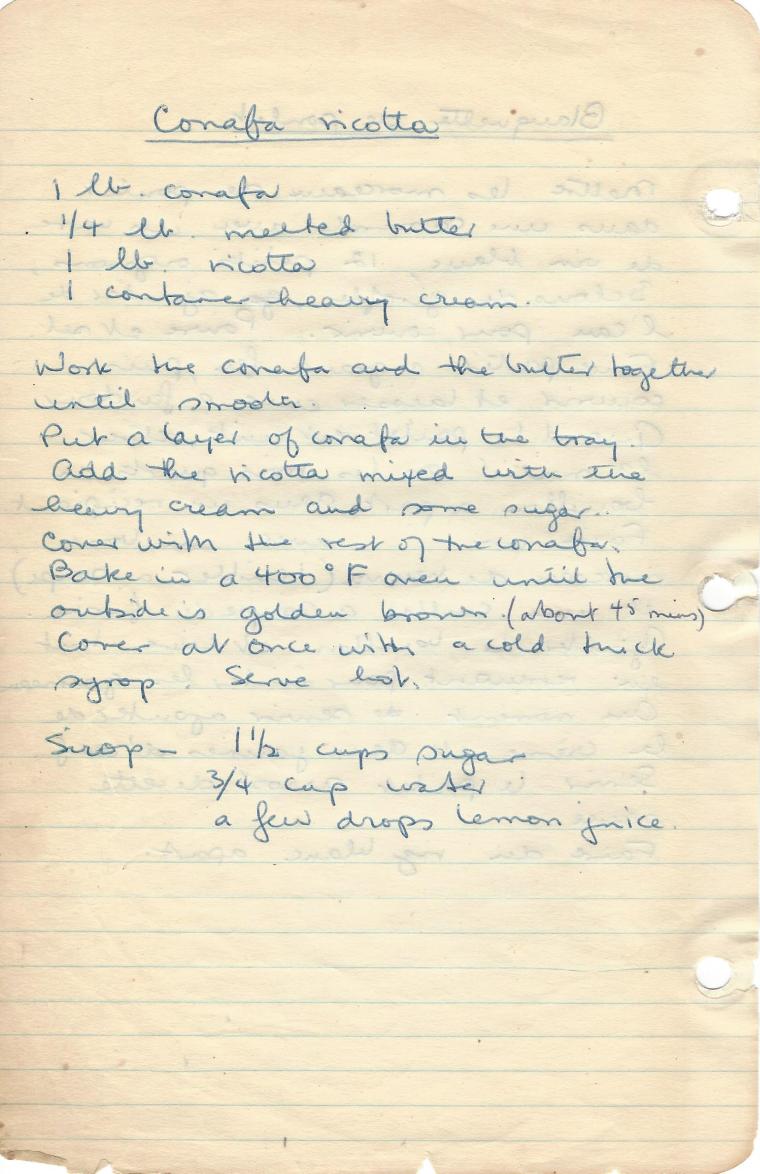 Conafa ricotta
1 lb. conafa
1/4 lb. melted butter
1 lb. ricotta
1 container heavy cream.
Work the conafa and the butter together
until smooth.
Put a layer of conafa in the tray.
Add the ricotta mixed with the
heavy cream and some sugar..
Cover with the rest of the conafa.
Bake in a 400° F oven until the
outside is golden brown. (about 45 mins)
Cover at once with a cold thick
syrop. Serve hot.
Sirop - 1 1/2 cups sugar
3/4 cup water
a few drops lemon juice.